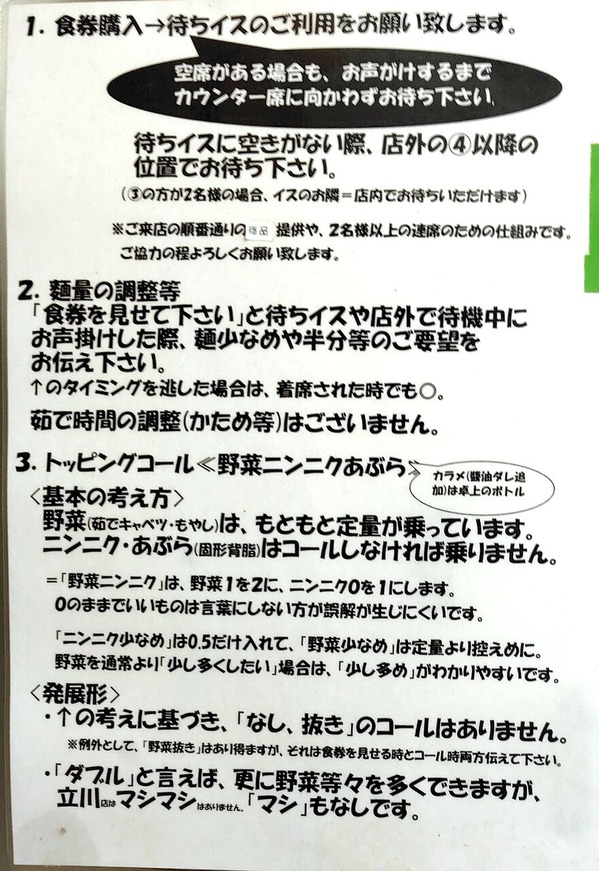 1. 食券購入→待ちイスのご利用をお願い致します。
空席がある場合も、お声がけするまで
カウンター席に向かわずお待ち下さい。
待ちイスに空きがない際、店外の④以降の
位置でお待ち下さい。
(③の方が2名様の場合、イスのお隣=店内でお待ちいただけます)
※ご来店の順番通りの商品提供や、2名様以上の連席のための仕組みです。
ご協力の程よろしくお願い致します。
2. 麺量の調整等
「食券を見せて下さい」と待ちイスや店外で待機中に
お声掛けした際、麺少なめや半分等のご要望を
お伝え下さい。
↑のタイミングを逃した場合は、着席された時でも○。
茹で時間の調整(かため等)はございません。
3. トッピングコール≪野菜ニンニクあぶら≫
カラメ(醤油ダレ追
加)は卓上のボトル
〈基本の考え方〉
野菜(茹でキャベツ・もやし)は、もともと定量が乗っています。
ニンニク・あぶら(固形背脂)はコールしなければ乗りません。
=「野菜ニンニク」は、野菜1を2に、ニンニク0を1にします。
0のままでいいものは言葉にしない方が誤解が生じにくいです。
「ニンニク少なめ」は0.5だけ入れて、「野菜少なめ」は定量より控えめに。
野菜を通常より「少し多くしたい」場合は、「少し多め」がわかりやすいです。
〈発展形〉
・↑の考えに基づき、「なし、抜き」のコールはありません。
※例外として、「野菜抜き」はあり得ますが、それは食券を見せる時とコール時両方伝えて下さい。
・「ダブル」と言えば、更に野菜等々を多くできますが、
立川店はマシマシはありません。「マシ」もなしです。